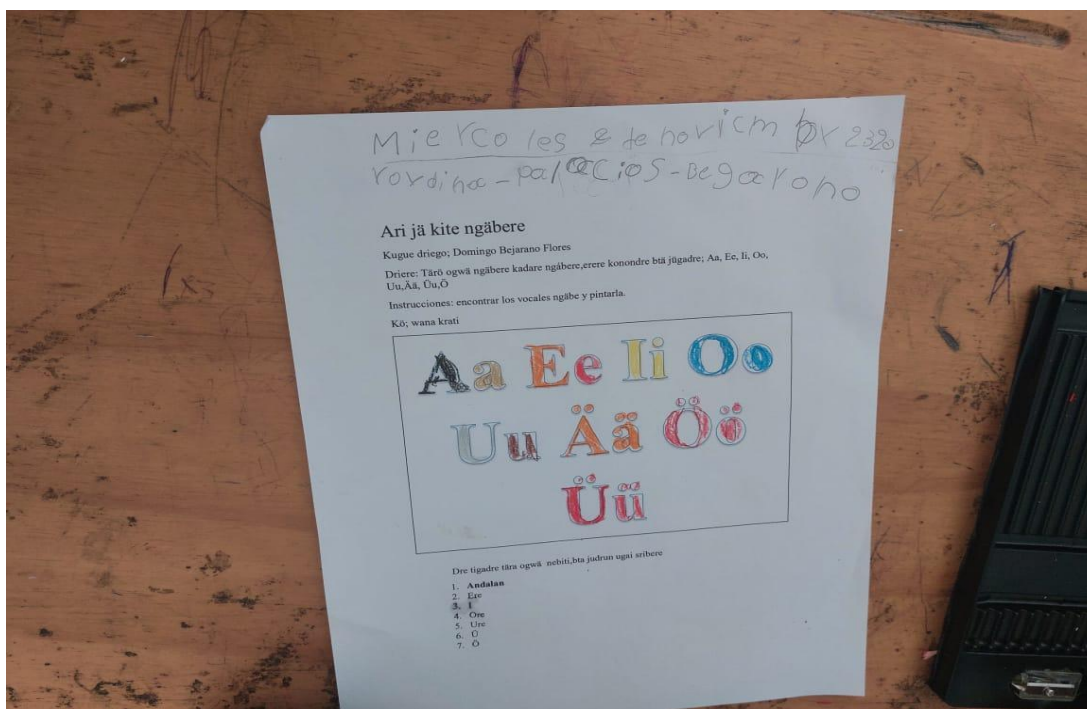 Mierco les 8 de novicm br 2320
rordina - palacios - Begarono
Ari jä kite ngäbere
Kugue driego; Domingo Bejarano Flores
Driere: Tärö ogwä ngäbere kadare ngäbere,erere konondre btä jügadre; Aa, Ee, Ii, Oo,
Uu,Ää, Üu,Ö
Instrucciones: encontrar los vocales ngäbe y pintarla.
Kö; wana krati
Aa Ee Ii Oo
Uu Ää Öö
Üü
Dre tigadre tära ogwä nebiti,bta judrun ugai sribere
1. Andalan
2. Ere
3. I
4. Ore
5. Ure
6. Ü
7. Ö